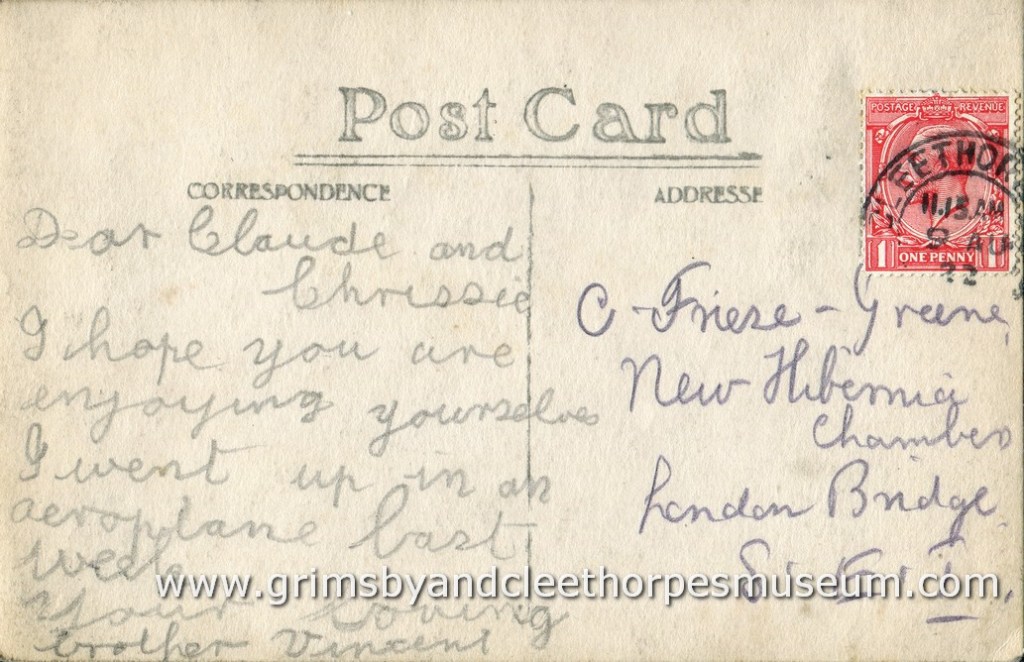 Post Card
CORRESPONDENCE
ADDRESSE
POSTAGE REVENUE
1 ONE PENNY 1
11.15 AM
9 AU
22
Dear Claude and
Chrissie
I hope you are
enjoying yourselves
I went up in an
aeroplane last
week
Your loving
brother Vincent
C-Friese-Greene,
New Hibernia
Chambers
London Bridge.
www.grimsbyandcleethorpesmuseum.com